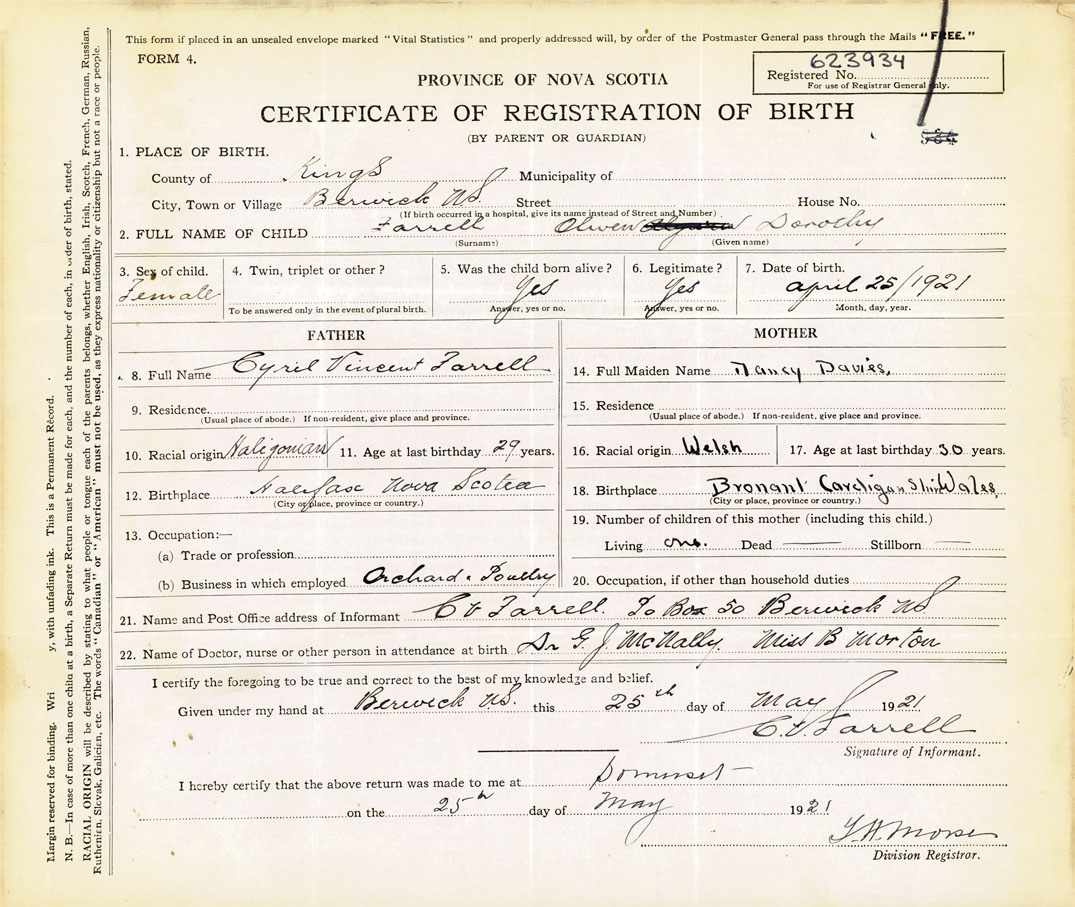 This form if placed in an unsealed envelope marked "Vital Statistics" and properly addressed will, by order of the Postmaster General pass through the Mails "FREE."
FORM 4.
623934
Registered No.
For use of Registrar General only.
PROVINCE OF NOVA SCOTIA
CERTIFICATE OF REGISTRATION OF BIRTH
(BY PARENT OR GUARDIAN)
1. PLACE OF BIRTH.
County of Kings Municipality of
City, Town or Village Berwick NS. Street House No.
(If birth occurred in a hospital, give its name instead of Street and Number)
2. FULL NAME OF CHILD Farrell Olwen Dorothy
(Surname) (Given name)
3. Sex of child. 4. Twin, triplet or other? 5. Was the child born alive? 6. Legitimate? 7. Date of birth.
Female Yes Yes april 25/1921
To be answered only in the event of plural birth. Answer, yes or no. Answer, yes or no. Month, day, year.
FATHER
8. Full Name Cyril Vincent Farrell
9. Residence.
(Usual place of abode.) If non-resident, give place and province.
10. Racial origin Haligonian 11. Age at last birthday 29 years.
12. Birthplace Halifax Nova Scotia
(City or place, province or country.)
13. Occupation:—
(a) Trade or profession
(b) Business in which employed Orchard & Poultry
MOTHER
14. Full Maiden Name Nancy Davies.
15. Residence
(Usual place of abode.) If non-resident, give place and province.
16. Racial origin Welsh 17. Age at last birthday 30 years.
18. Birthplace Bronant Cardigan Shire Wales
(City or place, province or country.)
19. Number of children of this mother (including this child.)
Living one. Dead — Stillborn —
20. Occupation, if other than household duties
21. Name and Post Office address of Informant C V Farrell. Po Box 50 Berwick NS
22. Name of Doctor, nurse or other person in attendance at birth Dr G. J. McNally. Miss B Morton
I certify the foregoing to be true and correct to the best of my knowledge and belief.
Given under my hand at Berwick NS. this 25th day of May 1921
C.V. Farrell
Signature of Informant.
I hereby certify that the above return was made to me at Somerset
on the 25th day of May 1921
Division Registrar.
Margin reserved for binding. Wri y, with unfading ink. This is a Permanent Record.
N. B.—In case of more than one child at a birth, a Separate Return must be made for each, and the number of each, in order of birth, stated.
RACIAL ORIGIN will be described by stating to what people or tongue each of the parents belongs, whether English, Irish, Scotch, French, German, Russian,
Ruthenian, Slovak, Galician, etc. The words "Canadian" or "American" must not be used, as they express nationality or citizenship but not a race or people.